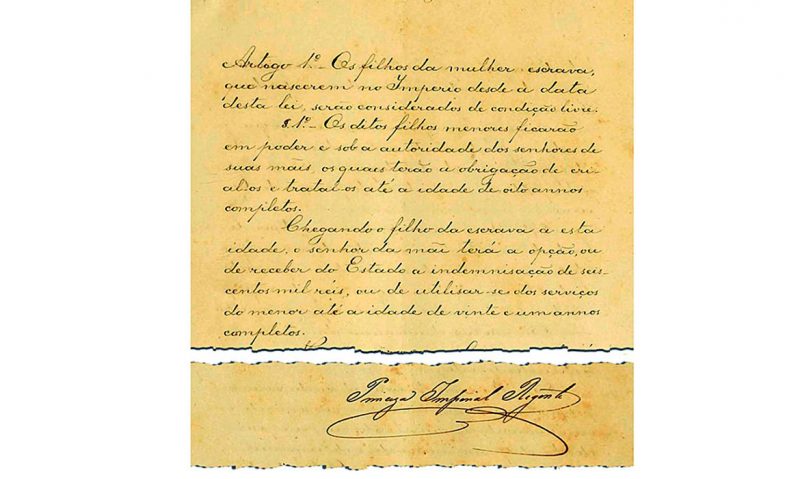 Artogo 1º_ Os filhos da mulher escrava,
que nascerem no Imperio desde a data
desta lei, serão considerados de condição livre.
§.1º_ Os ditos filhos menores ficarão
em poder e sob a autoridade dos senhores de
suas mãis, os quaes terão a obrigação de cri-
al-os e tratal-os até a idade de oito annos
completos.
Chegando o filho da escrava a esta
idade, o senhor da mãi terá a opção, ou
de receber do Estado a indemnisação de seis-
centos mil réis, ou de utilisar-se dos serviços
do menor até a idade de vinte e um annos
completos.
Princeza Imperial Regente